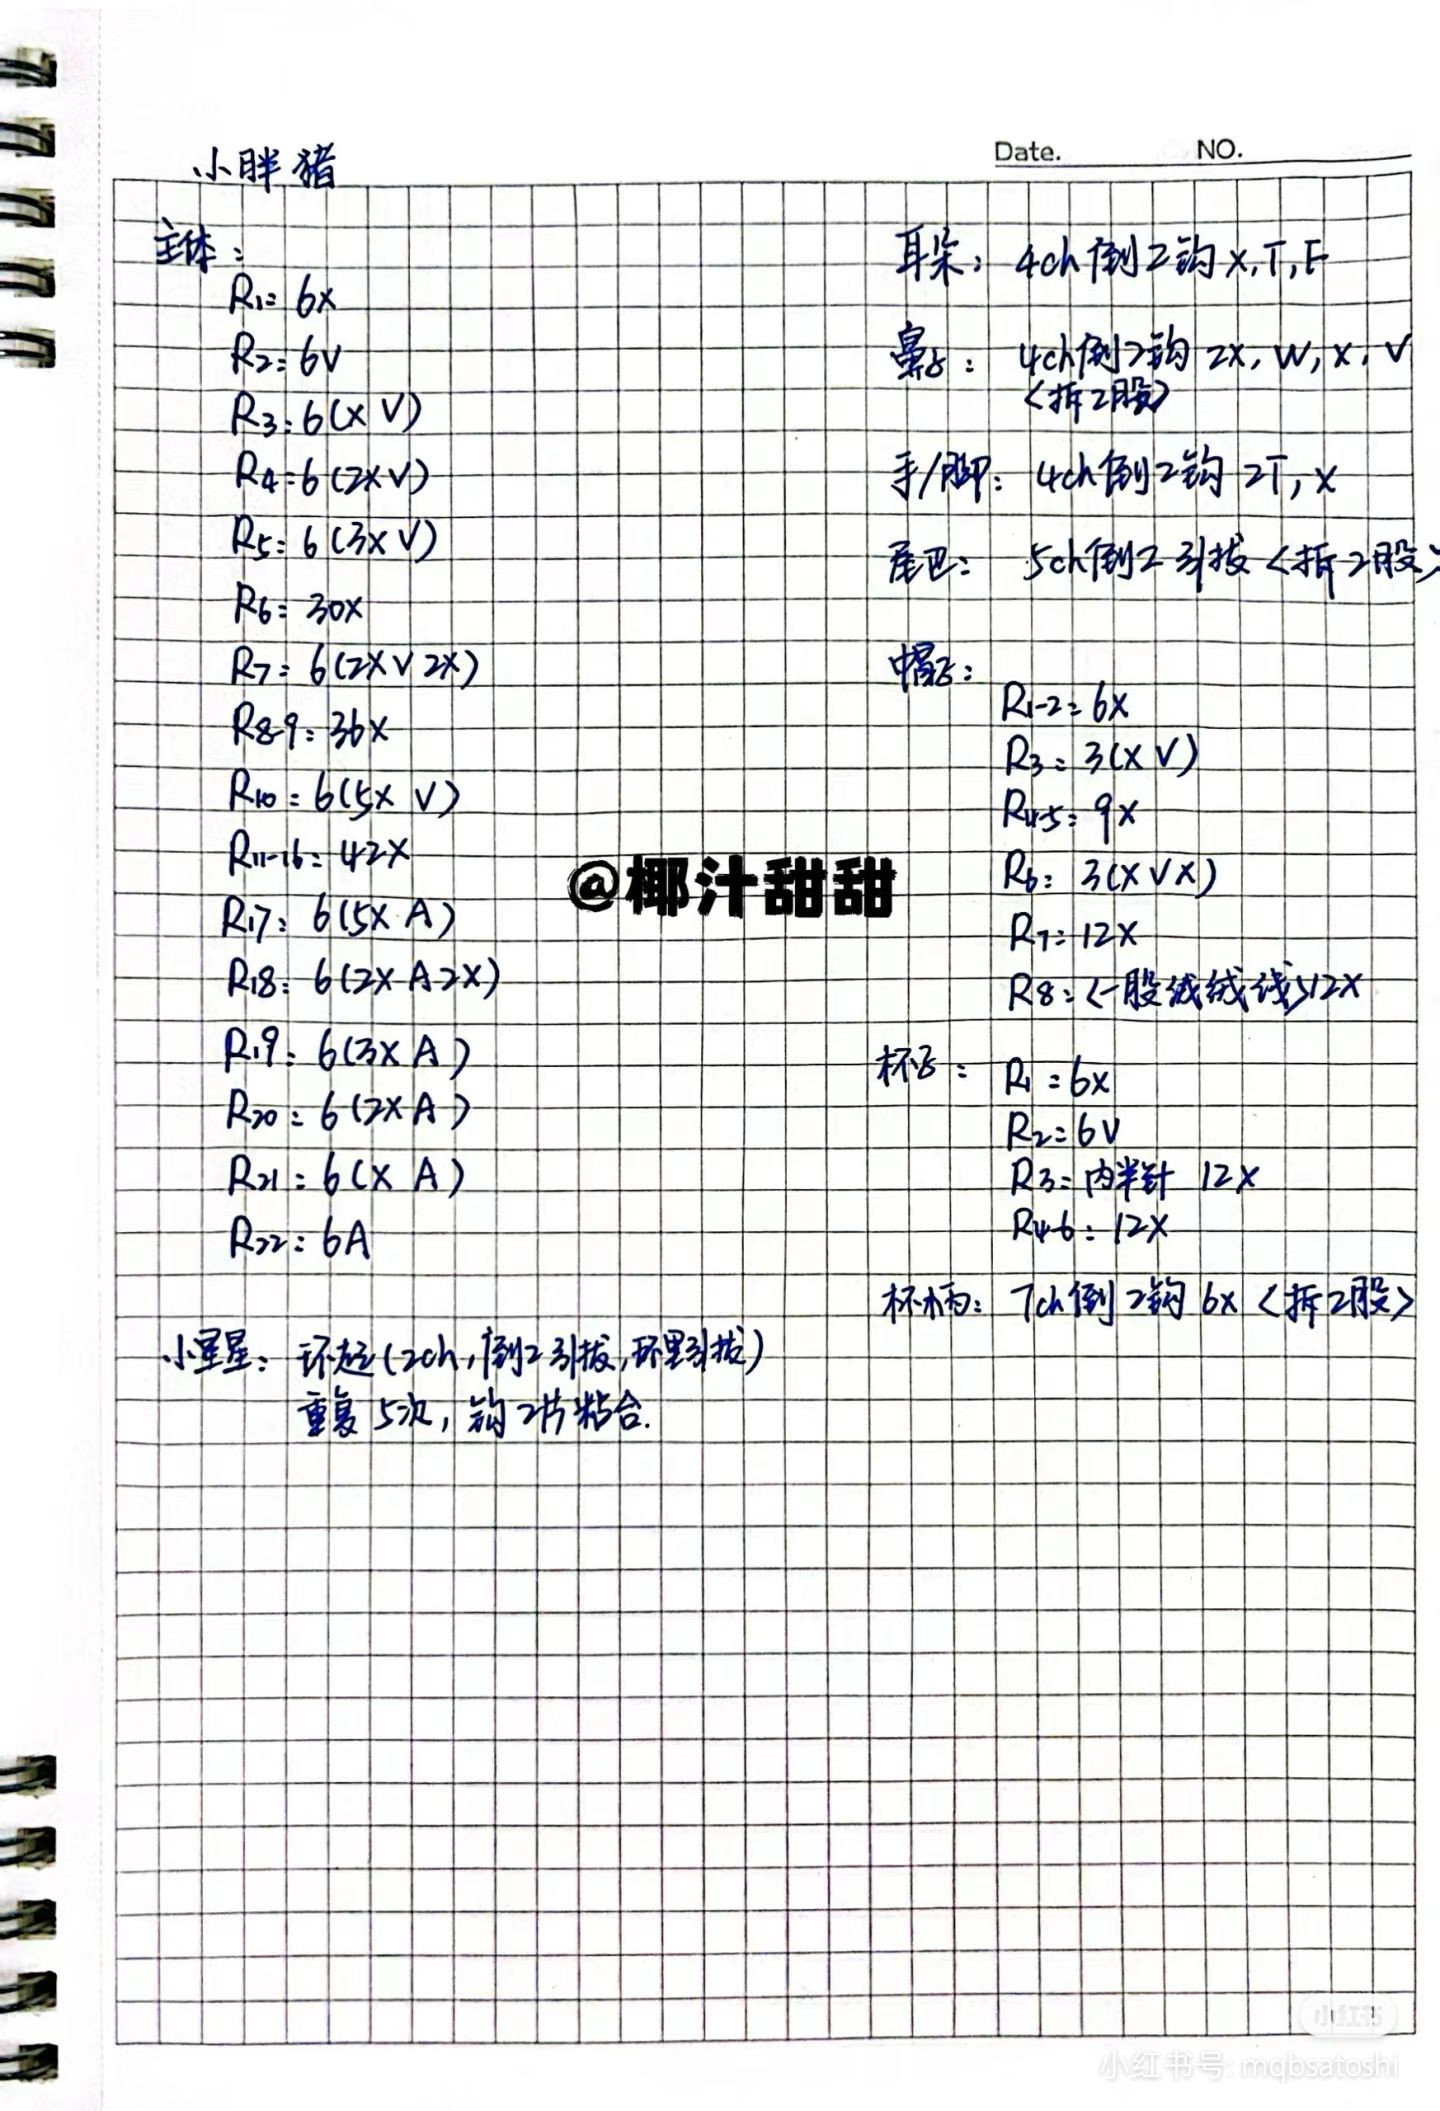 Date. NO.
小胖猪
主体：
R1: 6X
R2: 6V
R3: 6(X V)
R4: 6(2X V)
R5: 6(3X V)
R6: 30X
R7: 6(2X V 2X)
R8-9: 36X
R10: 6(5X V)
R11-16: 42X
R17: 6(5X A)
R18: 6(2X A 2X)
R19: 6(3X A)
R20: 6(2X A)
R21: 6(X A)
R22: 6A
小星星：环起(2ch,倒2引拔,环里引拔)
重复5次,钩2片粘合.
耳朵：4ch倒2钩X,T,F
鼻子：4ch倒2钩 2X,W,X,V
<拆2股>
手/脚：4ch倒2钩 2T,X
尾巴：5ch倒2引拔<拆2股>
帽子：
R1-2: 6X
R3: 3(X V)
R4-5: 9X
R6: 3(X V X)
R7: 12X
R8: <一股绒绒线>12X
杯子：R1: 6X
R2: 6V
R3: 内半针 12X
R4-6: 12X
杯柄：7ch倒2钩 6X <拆2股>
@椰汁甜甜
小红书
小红书号: mqbsatoshi